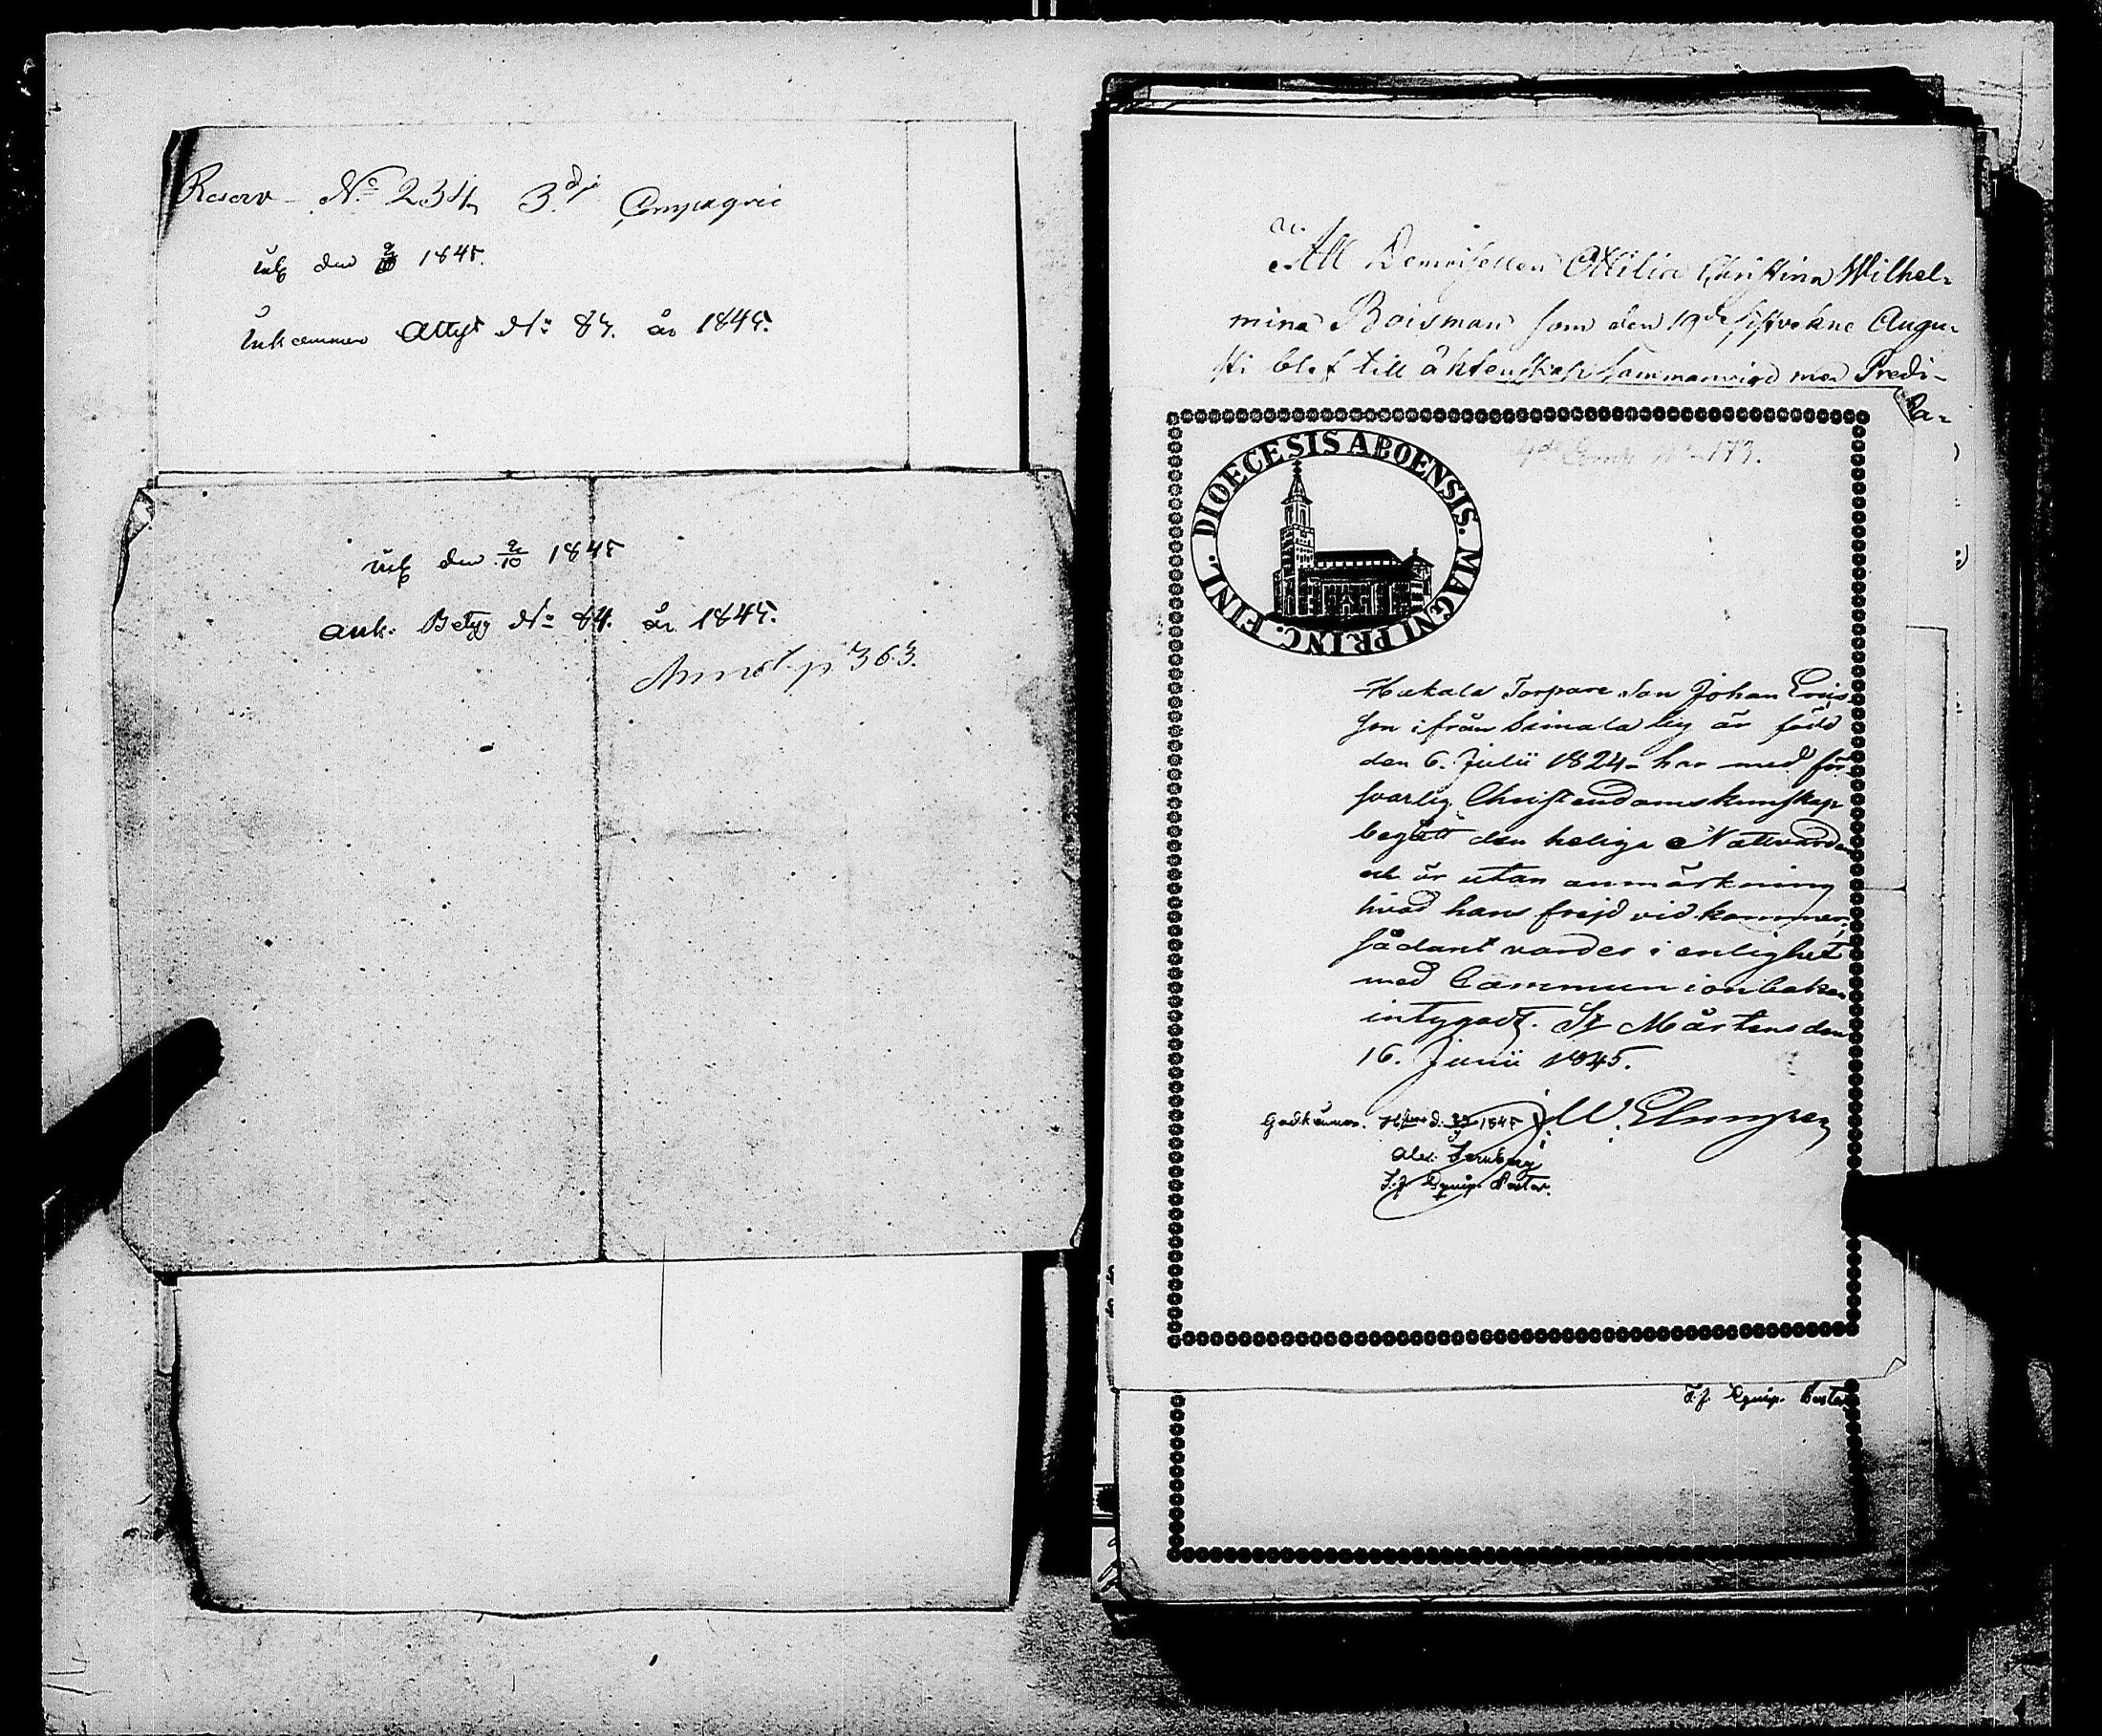 Reserv No 234, 3dje Compagnie
den 9/10 1845.
Inkommen Attest No 83. år 1845.
den 9/10 1845
Ank. Betyg No 84. år 1845.
p 363.
Att Demoisellen Ottilia Christina Wilhel-
mina Boisman som den 19de sistvekne Augu-
sti blef till äktenskap sammanvigd med Predi-
Ba-
4de Comp No 177.
DIOECESIS ABOENSIS. MAGNI PRINC. FINL.
Hakala Torpare Son Johan Erics
son ifrån Simala by är född
den 6. Julii 1824 - har med för-
svarlig Christendomskunskap
begått den heliga Nattvarden
och är utan anmärkning
hvad hans frejd vidkommer,
sådant varder i enlighet
med Communionboken
intygadt. St Mårtens den
16. Junii 1845.
W.
Godkännes. 1845
Alex. Jernberg
T.f. Equip. Pastor.
T.f. Equip. Pastor